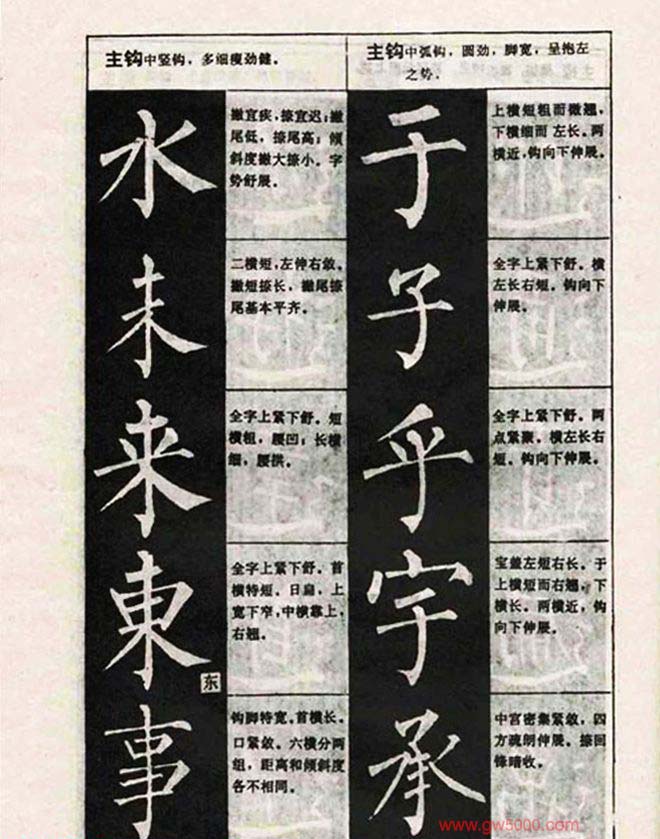 主钩中竖钩，多细瘦劲健。
水
撇宜疾，捺宜迟；撇
尾低，捺尾高；倾
斜度撇大捺小。字
势舒展。
未
二横短，左伸右敛。
撇短捺长，撇尾捺
尾基本平齐。
来
全字上紧下舒。短
横粗，腰凹；长横
细，腰拱。
東
东
全字上紧下舒。首
横特短。日扁，上
宽下窄，中横靠上，
右翘。
事
钩脚特宽。首横长。
口紧敛。六横分两
组，距离和倾斜度
各不相同。
主钩中弧钩，圆劲，脚宽，呈抱左
之势。
于
上横短粗而微翘，
下横细而 左长。两
横近，钩向下伸展。
子
全字上紧下舒。横
左长右短。钩向下
伸展。
乎
全字上紧下舒。两
点紧聚。横左长右
短。钩向下伸展。
宇
宝盖左短右长。于
上横短而右翘，下
横长。两横近，钩
向下伸展。
承
中宫密集紧敛，四
方疏朗伸展。捺回
锋暗收。
www.gw5000.com